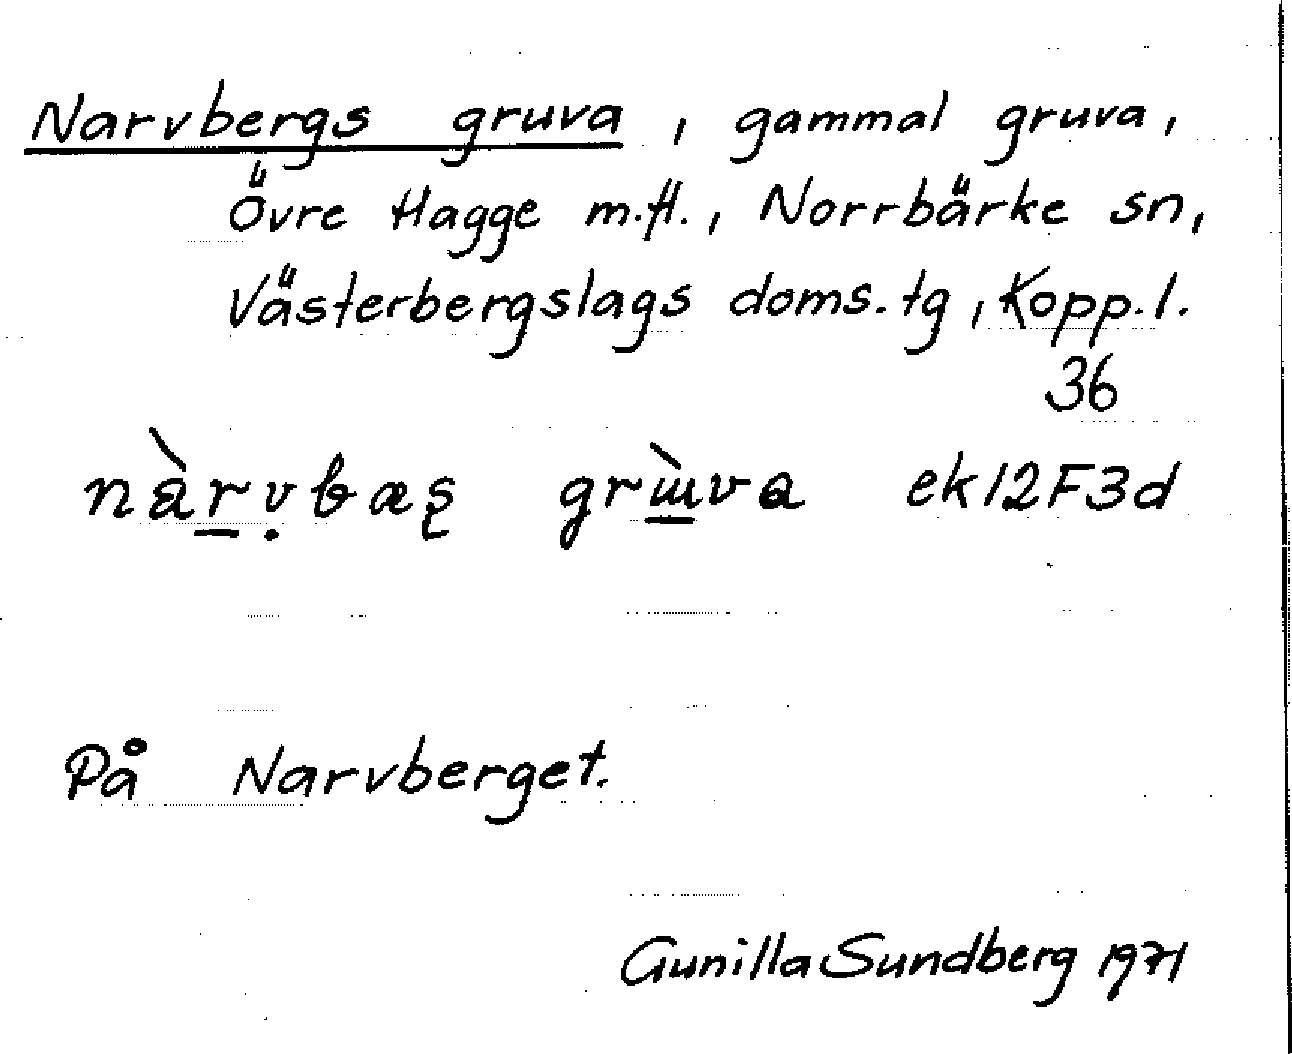 Narvbergs gruva, gammal gruva,
Övre Hagge m.fl., Norrbärke sn,
Västerbergslags doms. tg, Kopp. l.
36
nàrṿbæş grɯ̀va ek12F3d
På Narvberget.
Gunilla Sundberg 1971